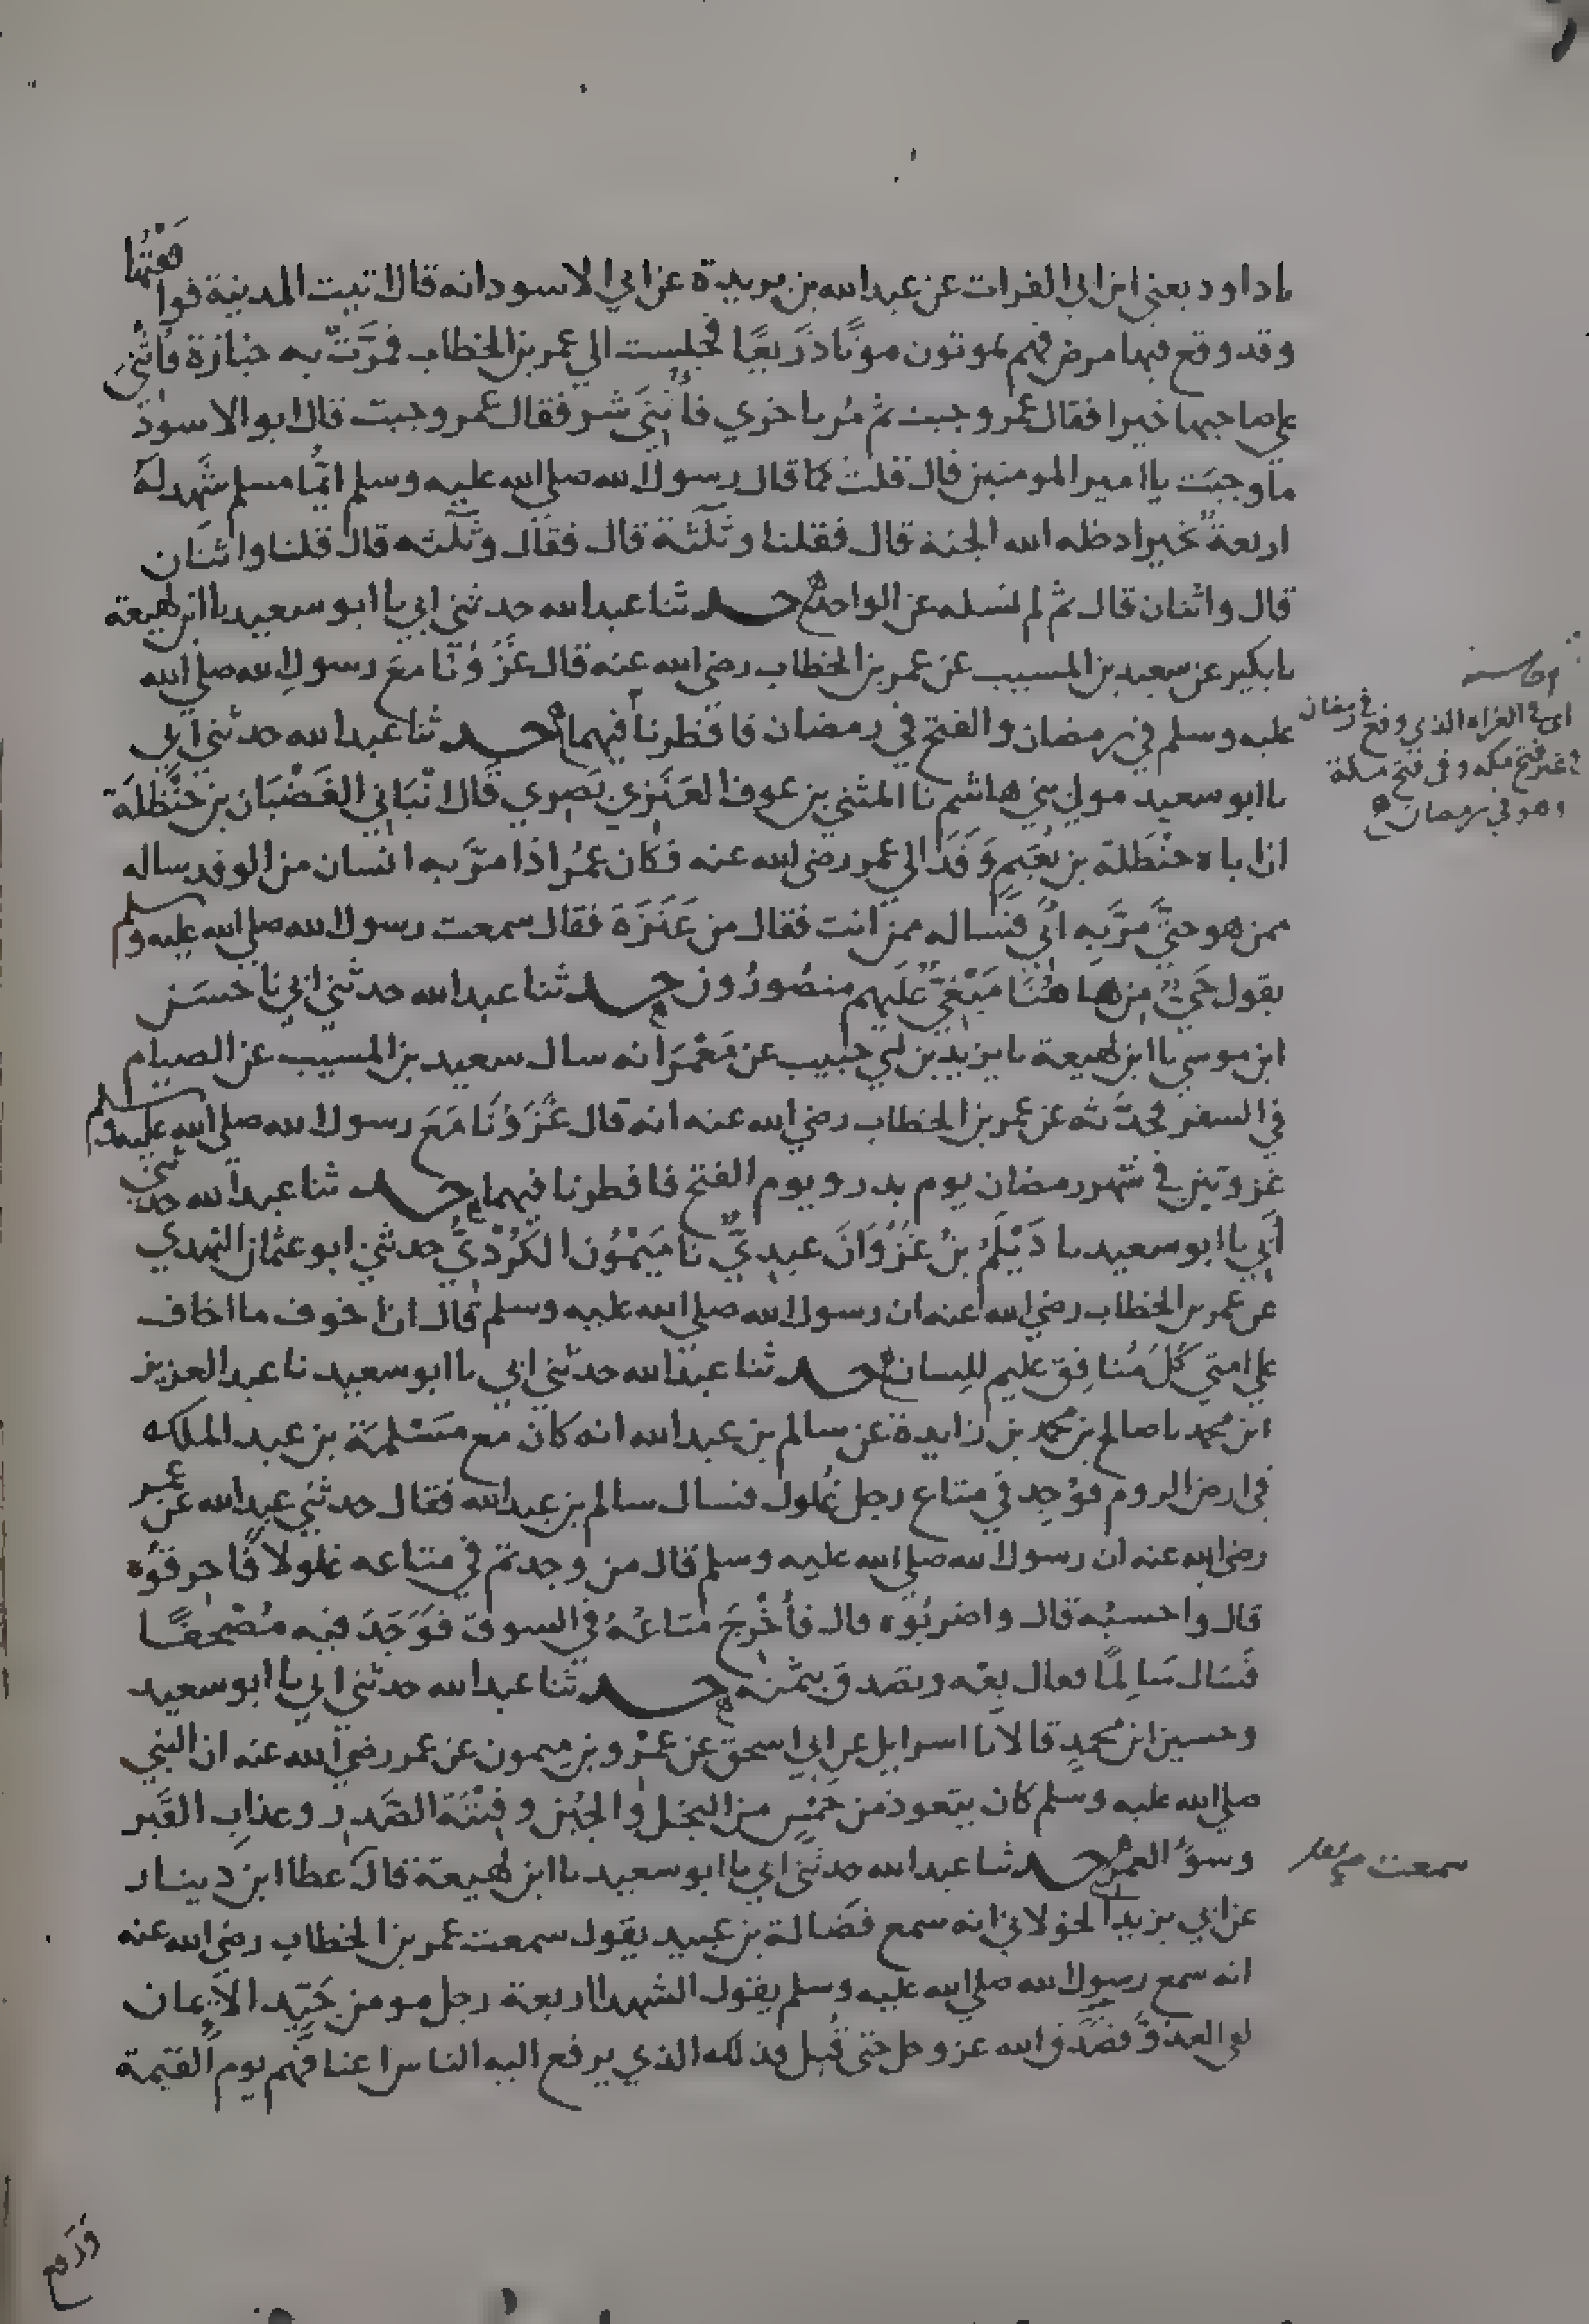 نا داود يعني ابن ابي الفرات عن عبد الله بن بريدة عن ابي الاسود انه قال اتيت المدينة فوافقتها
وقد وقع فيها مرض فهم يموتون موتًا ذَرِيعًا فجلست الي عمر بن الخطاب فمَرَّتْ به جنازة فأُثْنِيَ
علي صاحبها خيرا فقال عمر وجبت ثم مُر باخري فأُثْنِيَ شر فقال عمر وجبت قال ابو الاسود
ما وجبَت يا امير المومنين قال قلت كما قال رسول الله صلي الله عليه وسلم ايُّما مسلم شَهِد لَهُ
اربعةٌ بخير ادخله الله الجنة قال فقلنا وثَلٰثة قال فقال وثلٰثه قال قلنا واثنان
قال واثنان قال ثم لم نسله عن الواحد حـــد ثنا عبد الله حدثني ابي نا ابو سعيد نا ابن لهيعة
نا بكير عن سعيد بن المسيب عن عمر بن الخطاب رضي الله عنه قال غَزَوْنَا معَ رسولِ الله صلي الله
عليه وسلم في رمضان والفتح في رمضان فافطرنا فيهما حـــد ثنا عبد الله حدثني ابي
نا ابو سعيد مولي بني هاشم نا المثني بن عوف العَنَزي بَصري قال انْبَاني الغَضْبَان بن حَنْظَلَة
ان اباه حنْظَلة بن نُعَيمٍ وَفَدَ الي عمر رضي الله عنه فكان عمُر اذا مَرَّ به انسان من الوفد ساله
ممن هو حتي مَرَّ بِه ابي فسَاله ممن انت فقال من عَنَزَةَ فقال سمعت رسول الله صلي الله عليه وسلم
يقول حَيٌّ مِن هَاهُنَا مَبْغِيٌّ عَلَيهم منصُورُون حـــد ثنا عبد الله حدثني ابي نا حسَن
ابن موسي نا ابن لهيعة نا يزيد بن ابي حبيب عن مَعْمَر انه سال سعيد بن المسيب عن الصيام
في السفر فحدَّثه عن عمر بن الخطاب رضي الله عنه انه قال غَزَوْنَا مَعَ رسول الله صلي الله عليه وسلم
غزوتين في شهر رمضان يوم بدر ويوم الفتح فافطرنا فيهما حـــد ثنا عبد الله حدثني
أَبي نا ابو سعيد نا دَيْلَمُ بنُ غَزْوَانَ عبديٌّ نا مَيْمُون الكُرْدِيُّ حدثني ابو عثمان النهدي
عن عمر بن الخطاب رضي الله عنه ان رسول الله صلي الله عليه وسلم قال ان اخوف ما اخاف
علي امتي كُلَّ مُنافِق عليم اللِسان حـــد ثنا عبد الله حدثني ابي نا ابو سعيد نا عبد العزيز
ابن محمد نا صالح بن محمد بن زايدة عن سالم بن عبد الله انه كان مع مَسْلَمَة بن عبد الملك
في ارض الروم فوُجِد في متاع رجل غُلول فسال سالم بن عبد الله فقال حدثني عبد الله عن عمر
رضي الله عنه ان رسول الله صلي الله عليه وسلم قال من وجدتم في متاعه غلولا فَاحرقوُه
قال واحسبُه قال واضربُوه قال فأخْرجَ مَتاعَهُ في السوق فَوَجَدَ فيه مُصْحَفًا
فَسَال سَالِمًا فقال بِعْه وتصَدق بثمَنه حـــد ثنا عبد الله حدثني ابي نا ابو سعيد
وحسين ابن محمدٍ قالا نا اسرايل عن ابي اسحق عن عَمْرو بن ميمون عن عمر رضي الله عنه ان النبي
صلي الله عليه وسلم كان يتعوذ من خَمْسٍ من البخل والجُبْن وفِتْنَة الصَّدر وعذابِ القَبر
وسوء العمر حـــد ثنا عبد الله حدثني ابي نا ابو سعيد نا ابن لهيعة قال عطا ابن دينار
عن ابي يزيد الخولاني انه سمع فَضَالة بن عبيد يقول سمعت عمر بن الخطاب رضي الله عنه
انه سمع رسول الله صلي الله عليه وسلم يقول الشهدا اربعة رجل مومن جَيّد الايمان
لقي العدوَّ فصَدَق الله عز وجل حتي قُتِل فذلك الذي يرفع اليه الناس اعناقهم يوم القيمة
ورفع
اي في الغزاه الذي وقع في رمضان
في غير فتح مكه وفي فتح مكة
وهو في رمضان
سمعت